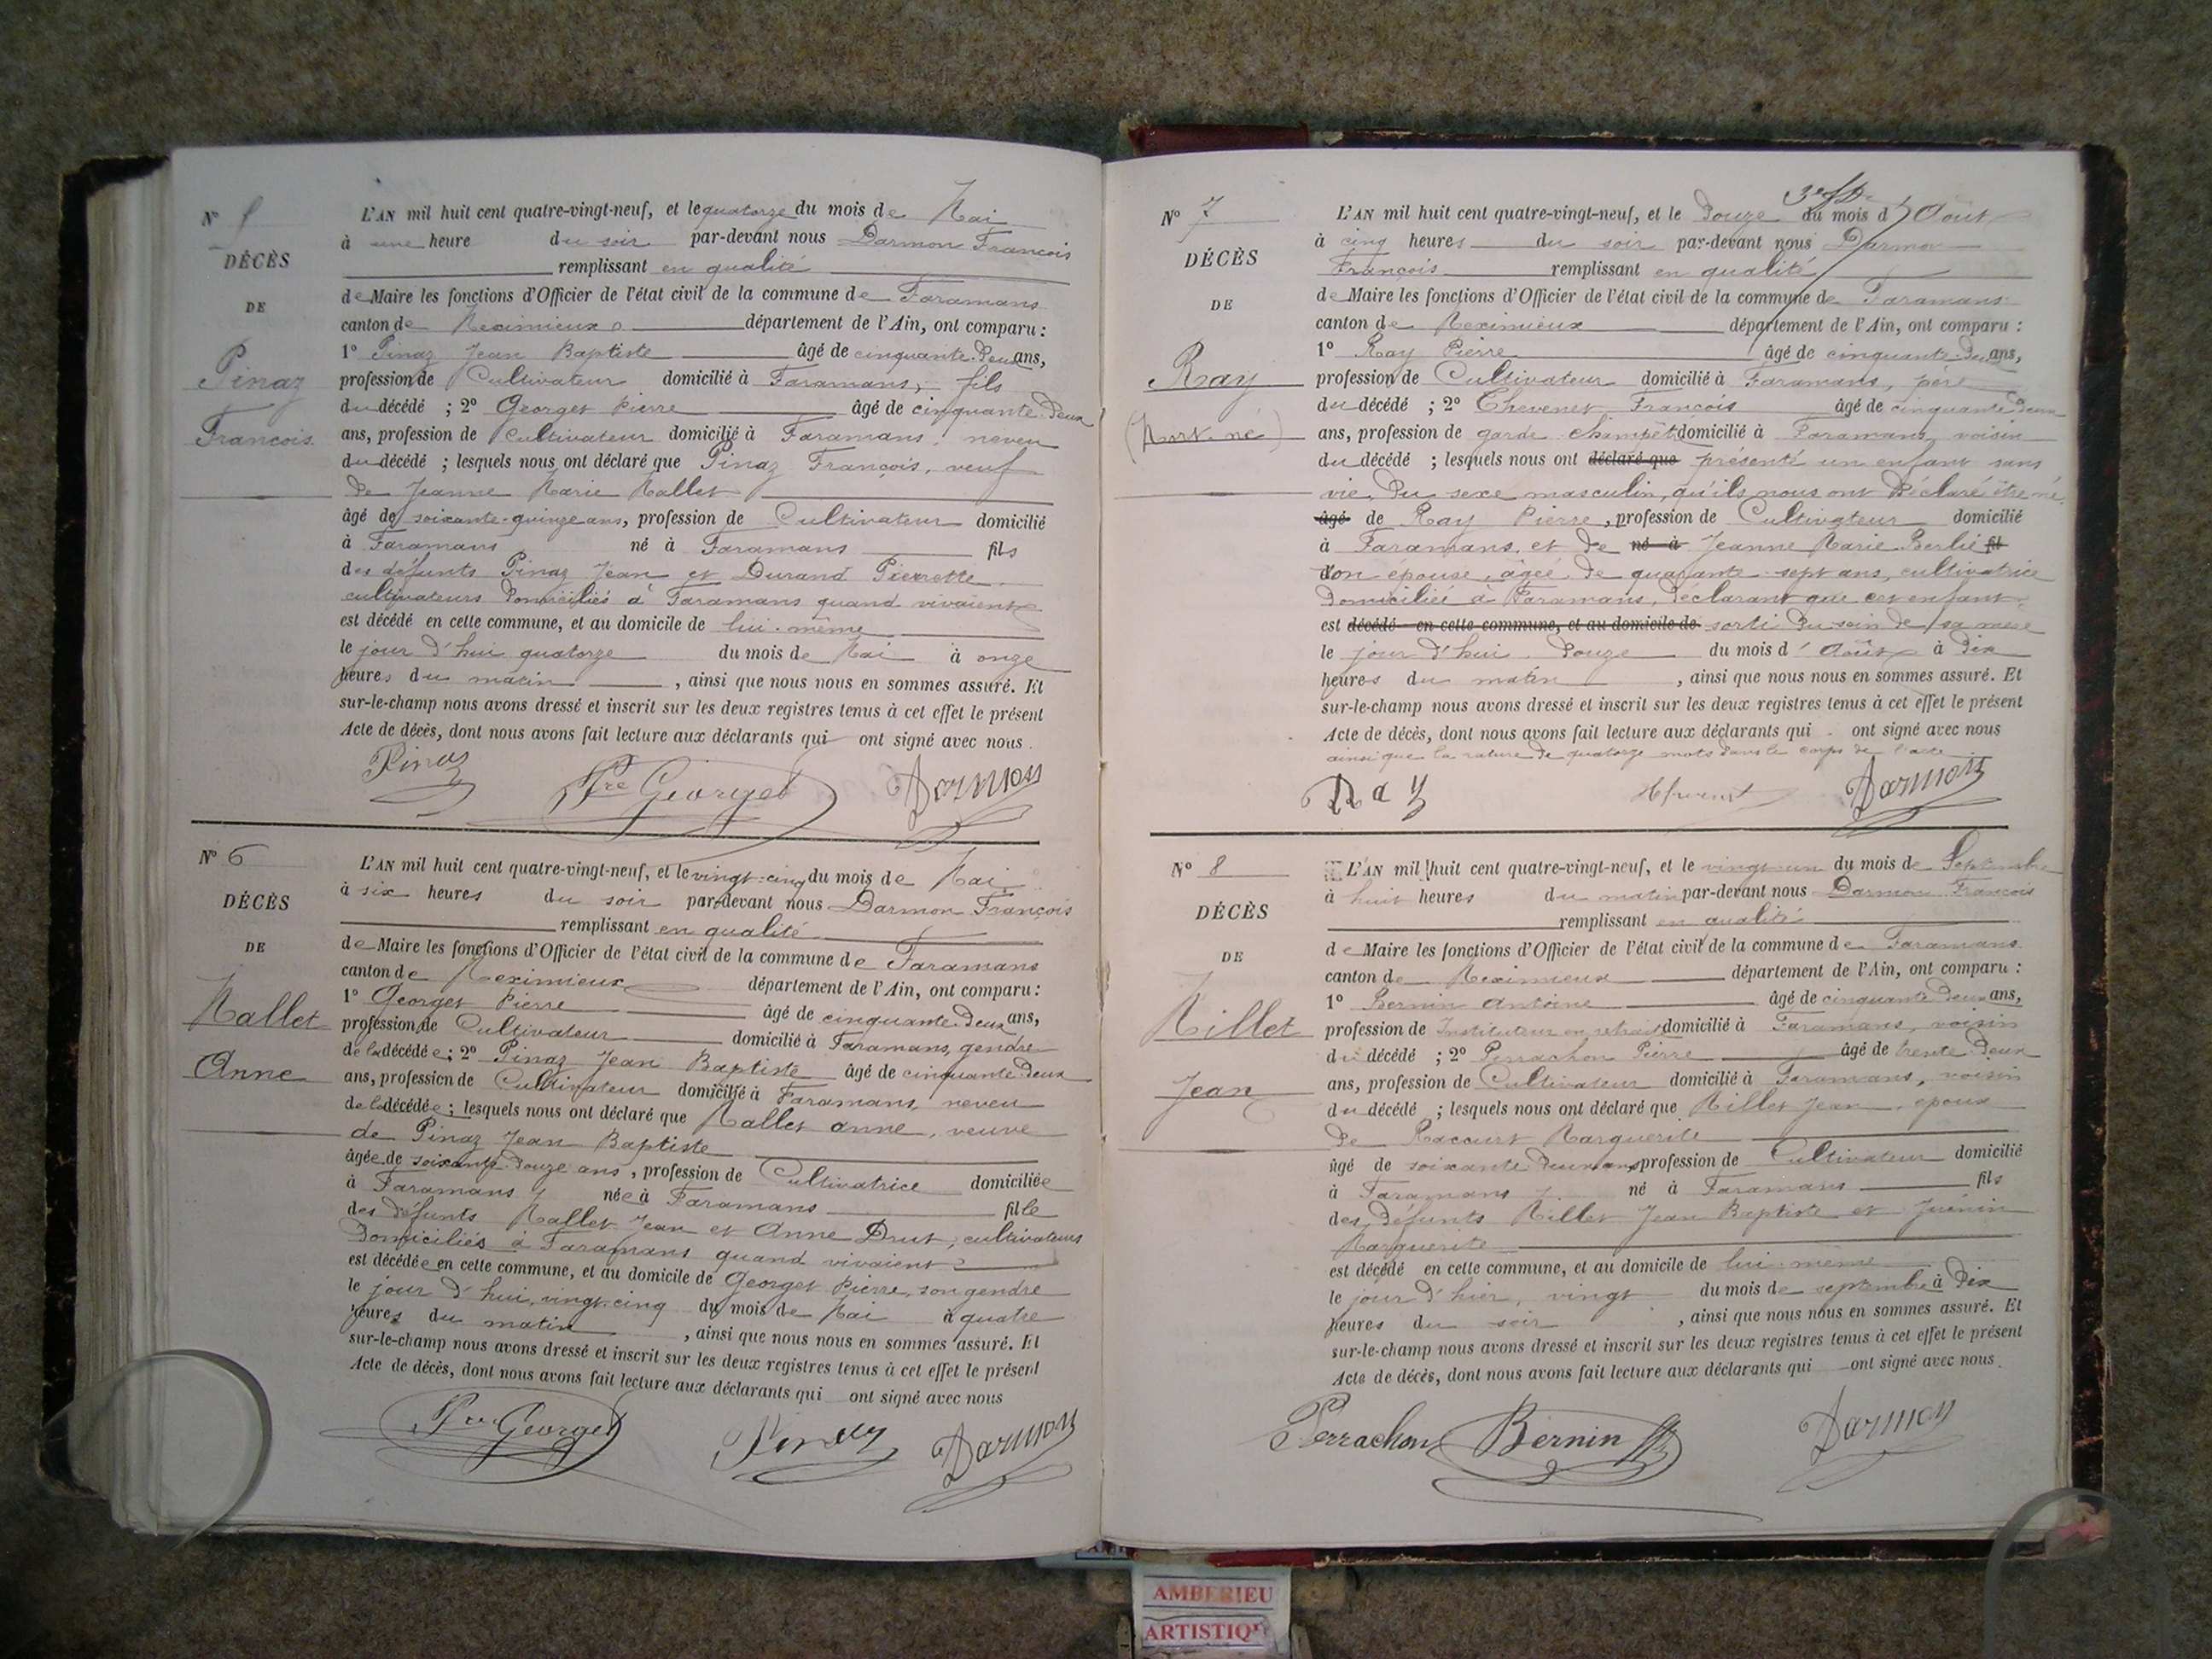 N° 5
DÉCÈS
DE
Pinaz
François
L'AN mil huit cent quatre-vingt-neuf, et le quatorze du mois de Mai
à une heure du soir par-devant nous Darmon François
remplissant en qualité
de Maire les fonctions d'Officier de l'état civil de la commune de Faramans
canton de Meximieux département de l'Ain, ont comparu :
1° Pinaz Jean Baptiste âgé de cinquante-deux ans,
profession de Cultivateur domicilié à Faramans, fils
du décédé ; 2° Georget Pierre âgé de cinquante-deux
ans, profession de Cultivateur domicilié à Faramans, neveu
du décédé ; lesquels nous ont déclaré que Pinaz François, veuf
de Jeanne Marie Mallet
âgé de soixante-quinze ans, profession de Cultivateur domicilié
à Faramans né à Faramans fils
des défunts Pinaz Jean et Durand Pierrette
cultivateurs domiciliés à Faramans quand vivaient
est décédé en cette commune, et au domicile de lui-même
le jour d'hui quatorze du mois de Mai à onze
heures du matin , ainsi que nous nous en sommes assuré. Et
sur-le-champ nous avons dressé et inscrit sur les deux registres tenus à cet effet le présent
Acte de décès, dont nous avons fait lecture aux déclarants qui ont signé avec nous.
Pinaz Pre Georget Darmon
N° 6
DÉCÈS
DE
Mallet
Anne
L'AN mil huit cent quatre-vingt-neuf, et le vingt-cinq du mois de Mai
à six heures du soir par-devant nous Darmon François
remplissant en qualité
de Maire les fonctions d'Officier de l'état civil de la commune de Faramans
canton de Meximieux département de l'Ain, ont comparu :
1° Georget Pierre âgé de cinquante-deux ans,
profession de Cultivateur domicilié à Faramans, gendre
de la décédée ; 2° Pinaz Jean Baptiste âgé de cinquante-deux
ans, profession de Cultivateur domicilié à Faramans, neveu
de la décédée ; lesquels nous ont déclaré que Mallet Anne, veuve
de Pinaz Jean Baptiste
âgée de soixante-douze ans, profession de Cultivatrice domiciliée
à Faramans née à Faramans fille
des défunts Mallet Jean et Anne Drut, cultivateurs
domiciliés à Faramans quand vivaient
est décédée en cette commune, et au domicile de Georget Pierre, son gendre
le jour d'hui, vingt-cinq du mois de Mai à quatre
heures du matin , ainsi que nous nous en sommes assuré. Et
sur-le-champ nous avons dressé et inscrit sur les deux registres tenus à cet effet le présent
Acte de décès, dont nous avons fait lecture aux déclarants qui ont signé avec nous
Pre Georget Pinaz Darmon
N° 7
DÉCÈS
DE
Ray
(Mort-né)
L'AN mil huit cent quatre-vingt-neuf, et le Douze du mois d'Août
à cinq heures du soir par-devant nous Darmon
François remplissant en qualité
de Maire les fonctions d'Officier de l'état civil de la commune de Faramans
canton de Meximieux département de l'Ain, ont comparu :
1° Ray Pierre âgé de cinquante-deux ans,
profession de Cultivateur domicilié à Faramans, père
du décédé ; 2° Chevenet François âgé de cinquante-deux
ans, profession de garde champêt domicilié à Faramans, voisin
du décédé ; lesquels nous ont déclaré que présenté un enfant sans
vie, du sexe masculin, qu'ils nous ont déclaré être né
âgé de Ray Pierre, profession de Cultivateur domicilié
à Faramans, et de né à Jeanne Marie Berlié fil
son épouse, âgée de quarante-sept ans, cultivatrice
domiciliée à Faramans, déclarant que cet enfant
est décédé en cette commune, et au domicile de sorti du sein de sa mère
le jour d'hui Douze du mois d'Août à Dix
heures du matin , ainsi que nous nous en sommes assuré. Et
sur-le-champ nous avons dressé et inscrit sur les deux registres tenus à cet effet le présent
Acte de décès, dont nous avons fait lecture aux déclarants qui ont signé avec nous
ainsi que la rature de quatorze mots dans le corps de l'acte
Ray Darmon
N° 8
DÉCÈS
DE
Millet
Jean
L'AN mil huit cent quatre-vingt-neuf, et le vingt-un du mois de Septembre
à huit heures du matin par-devant nous Darmon François
remplissant en qualité
de Maire les fonctions d'Officier de l'état civil de la commune de Faramans
canton de Meximieux département de l'Ain, ont comparu :
1° Bernin Antoine âgé de cinquante-deux ans,
profession de Instituteur en retrait domicilié à Faramans, voisin
du décédé ; 2° Perrachon Pierre âgé de trente-deux
ans, profession de Cultivateur domicilié à Faramans, voisin
du décédé ; lesquels nous ont déclaré que Millet Jean, époux
de Racourt Marguerite
âgé de soixante-deux ans profession de Cultivateur domicilié
à Faramans né à Faramans fils
des défunts Millet Jean Baptiste et Juénin
Marguerite
est décédé en cette commune, et au domicile de lui-même
le jour d'hier, vingt du mois de septembre à Dix
heures du soir , ainsi que nous nous en sommes assuré. Et
sur-le-champ nous avons dressé et inscrit sur les deux registres tenus à cet effet le présent
Acte de décès, dont nous avons fait lecture aux déclarants qui ont signé avec nous.
Perrachon Bernin Darmon
AMBERIEU
ARTISTIQU